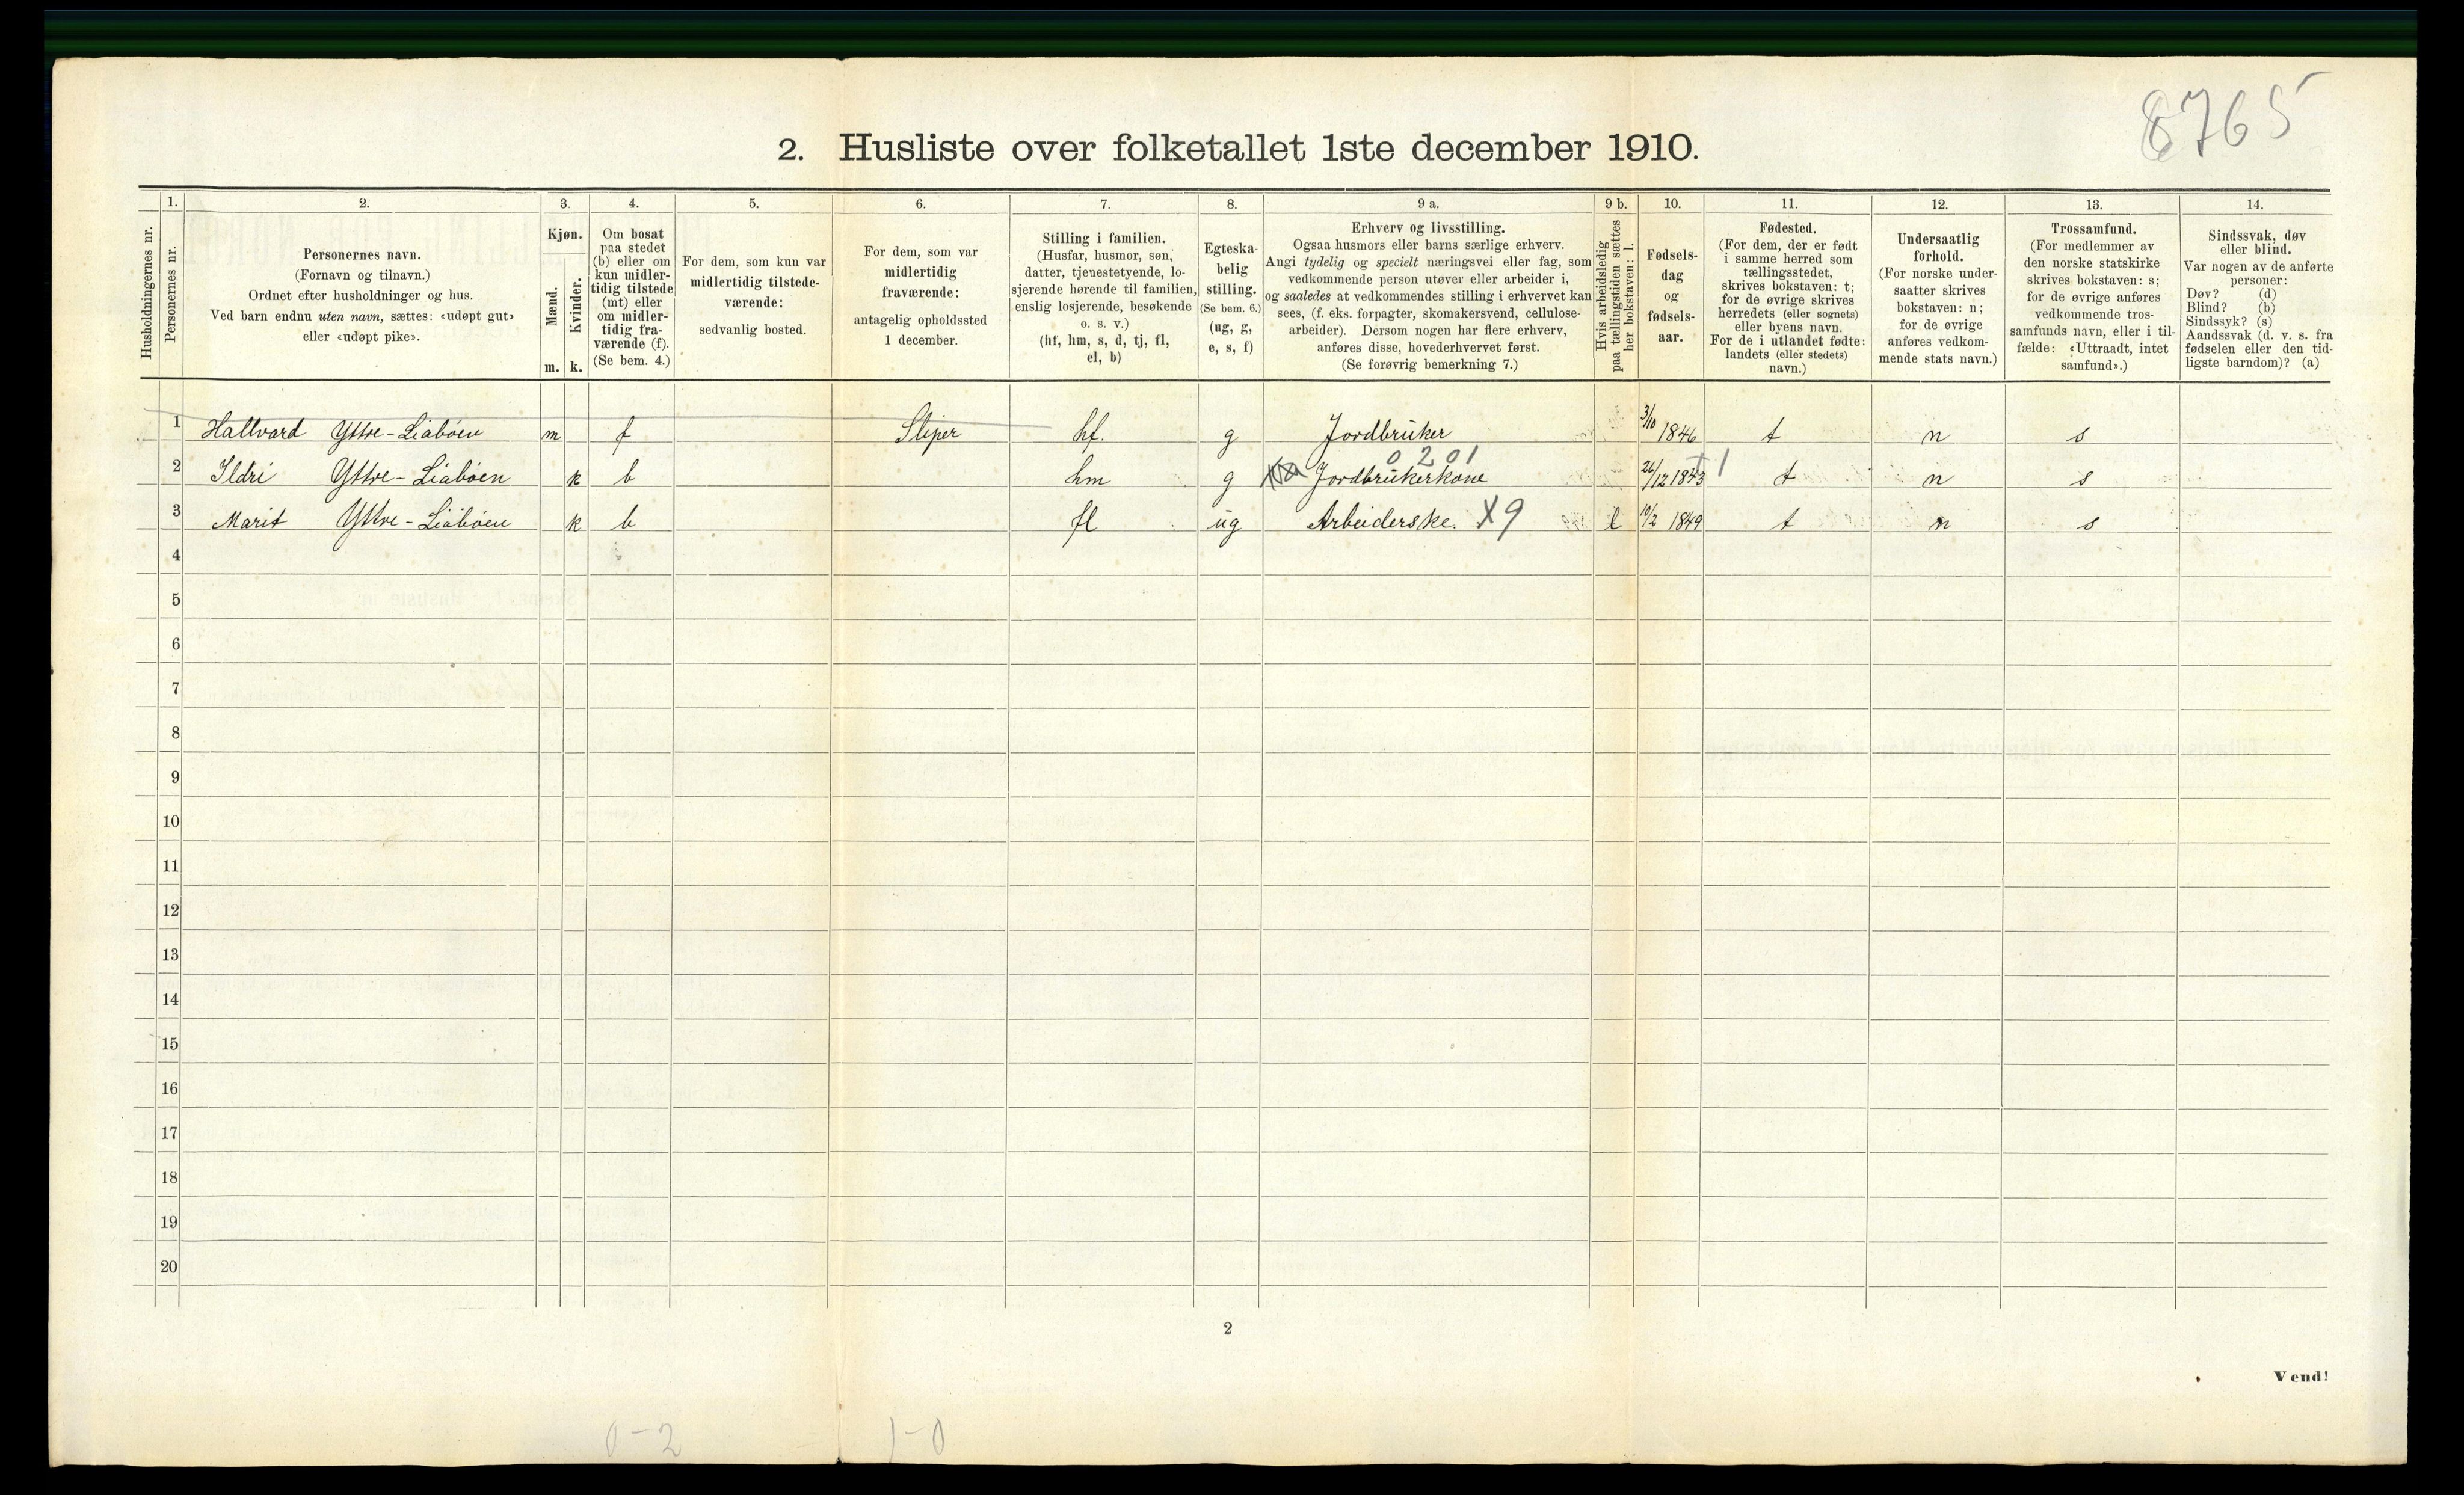 8765
2. Husliste over folketallet 1ste december 1910.
Husholdningernes nr.
1.
Personernes nr.
2.
Personernes navn.
(Fornavn og tilnavn.)
Ordnet efter husholdninger og hus.
Ved barn endnu uten navn, sættes: «udøpt gut»
eller «udøpt pike».
3.
Kjøn.
Mænd.
Kvinder.
m. k.
4.
Om bosat
paa stedet
(b) eller om
kun midler-
tidig tilstede
(mt) eller
om midler-
tidig fra-
værende (f).
(Se bem. 4.)
5.
For dem, som kun var
midlertidig tilstede-
værende:
sedvanlig bosted.
6.
For dem, som var
midlertidig
fraværende:
antagelig opholdssted
1 december.
7.
Stilling i familien.
(Husfar, husmor, søn,
datter, tjenestetyende, lo-
sjerende hørende til familien,
enslig losjerende, besøkende
o. s. v.)
(hf, hm, s, d, tj, fl,
el, b)
8.
Egteska-
belig
stilling.
(Se bem. 6.)
(ug, g,
e, s, f)
9 a.
Erhverv og livsstilling.
Ogsaa husmors eller barns særlige erhverv.
Angi tydelig og specielt næringsvei eller fag, som
vedkommende person utøver eller arbeider i,
og saaledes at vedkommendes stilling i erhvervet kan
sees, (f. eks. forpagter, skomakersvend, cellulose-
arbeider). Dersom nogen har flere erhverv,
anføres disse, hovederhvervet først.
(Se forøvrig bemerkning 7.)
9 b.
Hvis arbeidsledig
paa tællingstiden sættes
her bokstaven: l.
10.
Fødsels-
dag
og
fødsels-
aar.
11.
Fødested.
(For dem, der er født
i samme herred som
tællingsstedet,
skrives bokstaven: t;
for de øvrige skrives
herredets (eller sognets)
eller byens navn.
For de i utlandet fødte:
landets (eller stedets)
navn.)
12.
Undersaatlig
forhold.
(For norske under-
saatter skrives
bokstaven: n;
for de øvrige
anføres vedkom-
mende stats navn.)
13.
Trossamfund.
(For medlemmer av
den norske statskirke
skrives bokstaven: s;
for de øvrige anføres
vedkommende tros-
samfunds navn, eller i til-
fælde: «Uttraadt, intet
samfund».)
14.
Sindssvak, døv
eller blind.
Var nogen av de anførte
personer:
Døv? (d)
Blind? (b)
Sindssyk? (s)
Aandssvak (d. v. s. fra
fødselen eller den tid-
ligste barndom)? (a)
1 Hallvard Yttre-Liabøen m f Sliper hf. g Jordbruker 3/10 1846 t n s
0 2 0 1
2 Ildri Yttre-Liabøen k b hm g Jordbrukerkone 26/12 1843 t n s
3 Marit Yttre-Liabøen k b fl ug Arbeiderske. X9 l 10/2 1849 t n s
4
5
6
7
8
9
10
11
12
13
14
15
16
17
18
19
20
2
Vend!
0-2 1-0